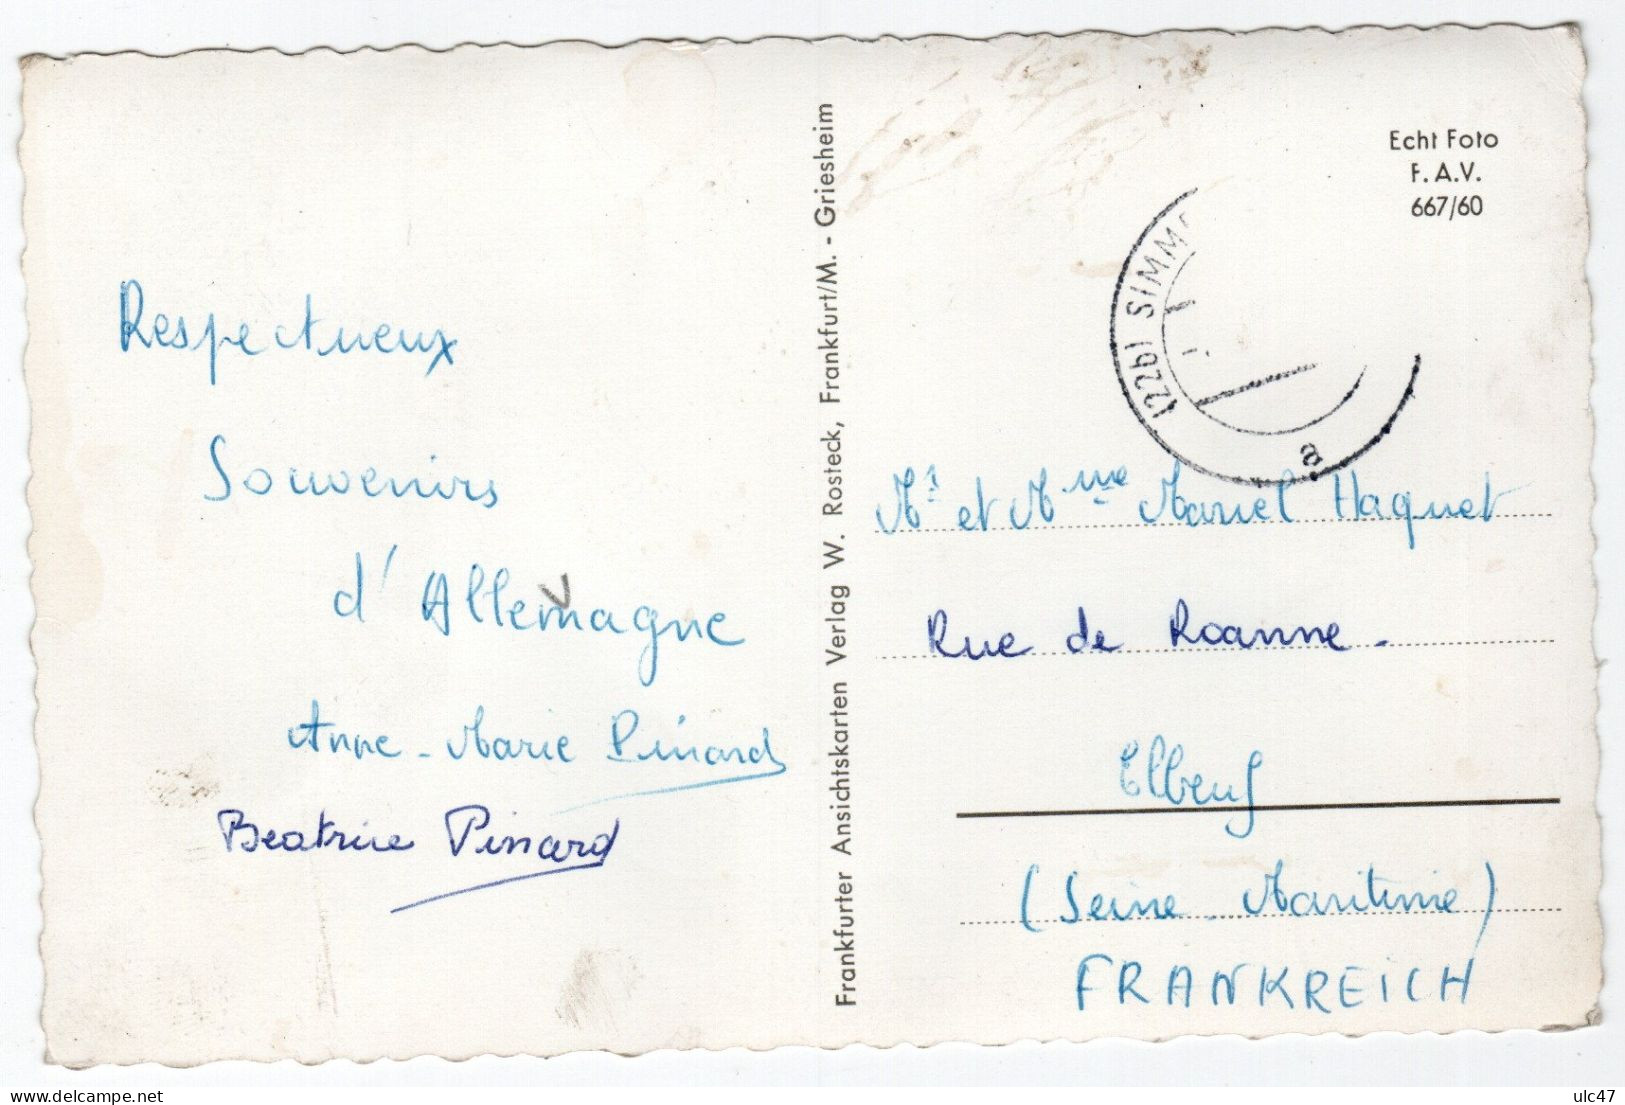 Respectueux
Souvenirs
d'Allemagne
Anne-Marie Pinard
Beatrice Pinard
Frankfurter Ansichtskarten Verlag W. Rosteck, Frankfurt/M. - Griesheim
Echt Foto
F. A. V.
667/60
(22b) SIMM
a
Mr et Mme Marcel Haquet
Rue de Roanne -
Elbeuf
(Seine-Maritime)
FRANKREICH
delcampe.net
ulc47